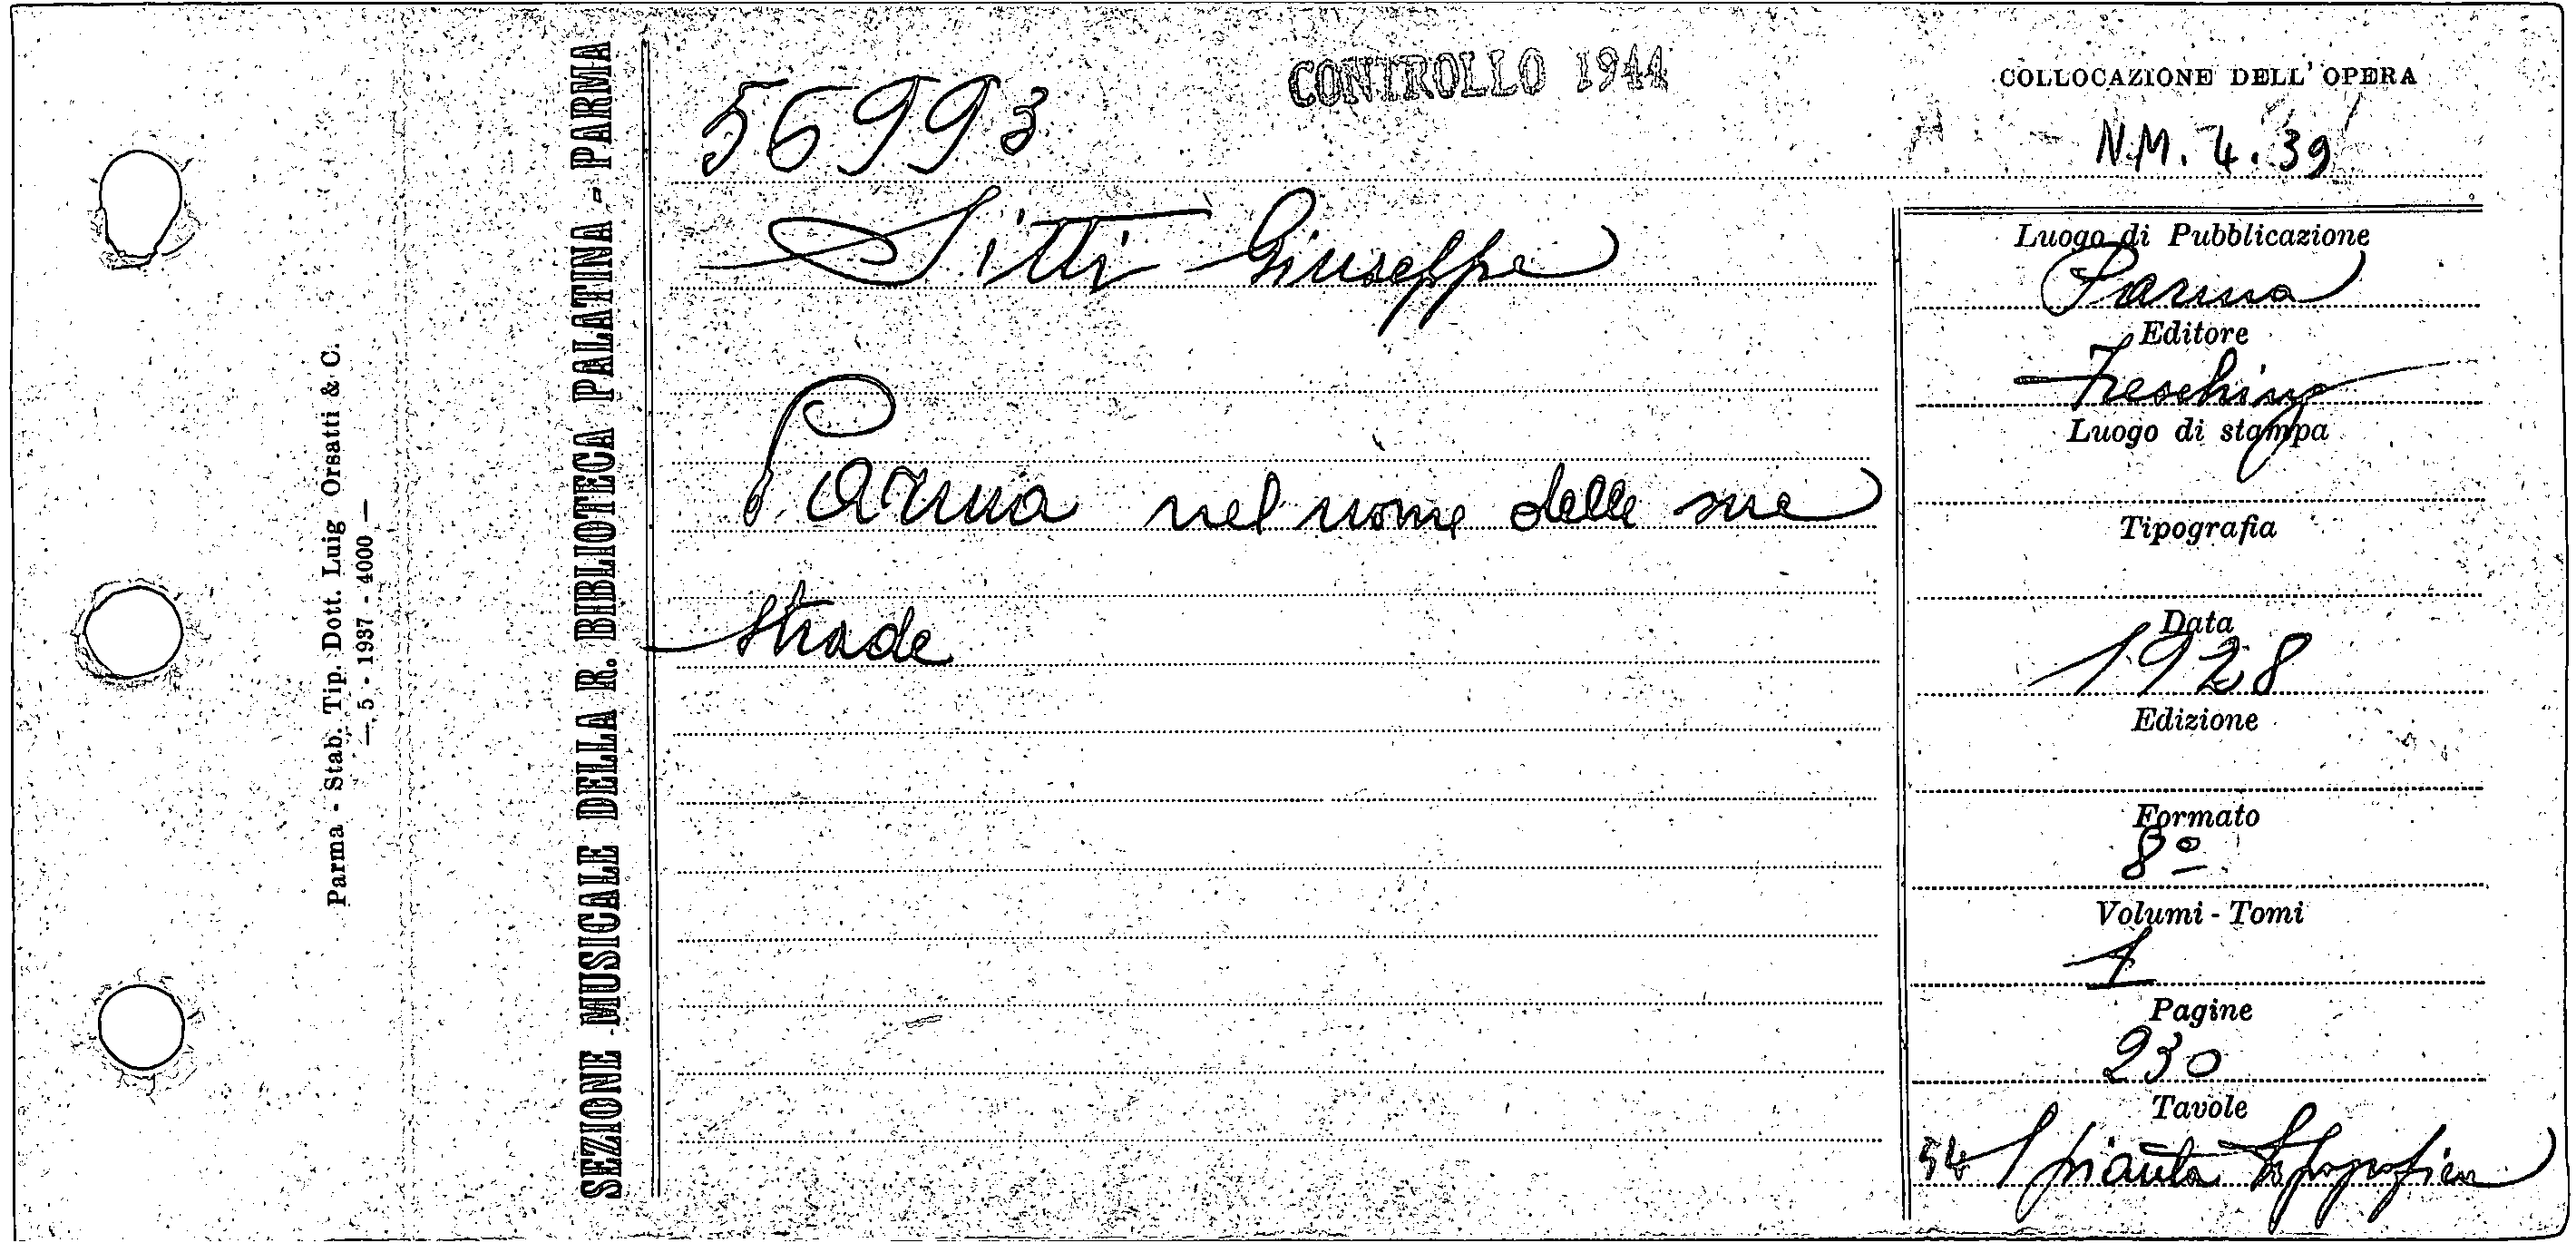 Parma - Stab. Tip. Dott. Luig Orsatti & C.
— 5 - 1937 - 4000 —
SEZIONE MUSICALE DELLA R. BIBLIOTECA PALATINA - PARMA
56993
CONTROLLO 1944
COLLOCAZIONE DELL' OPERA
N.M. 4. 39
Sitti Giuseppe
Parma nel nome delle sue
strade
Luogo di Pubblicazione
Parma
Editore
Fresching
Luogo di stampa
Tipografia
Data
1928
Edizione
Formato
8º
Volumi - Tomi
1
Pagine
230
Tavole
54 1 pianta topografica